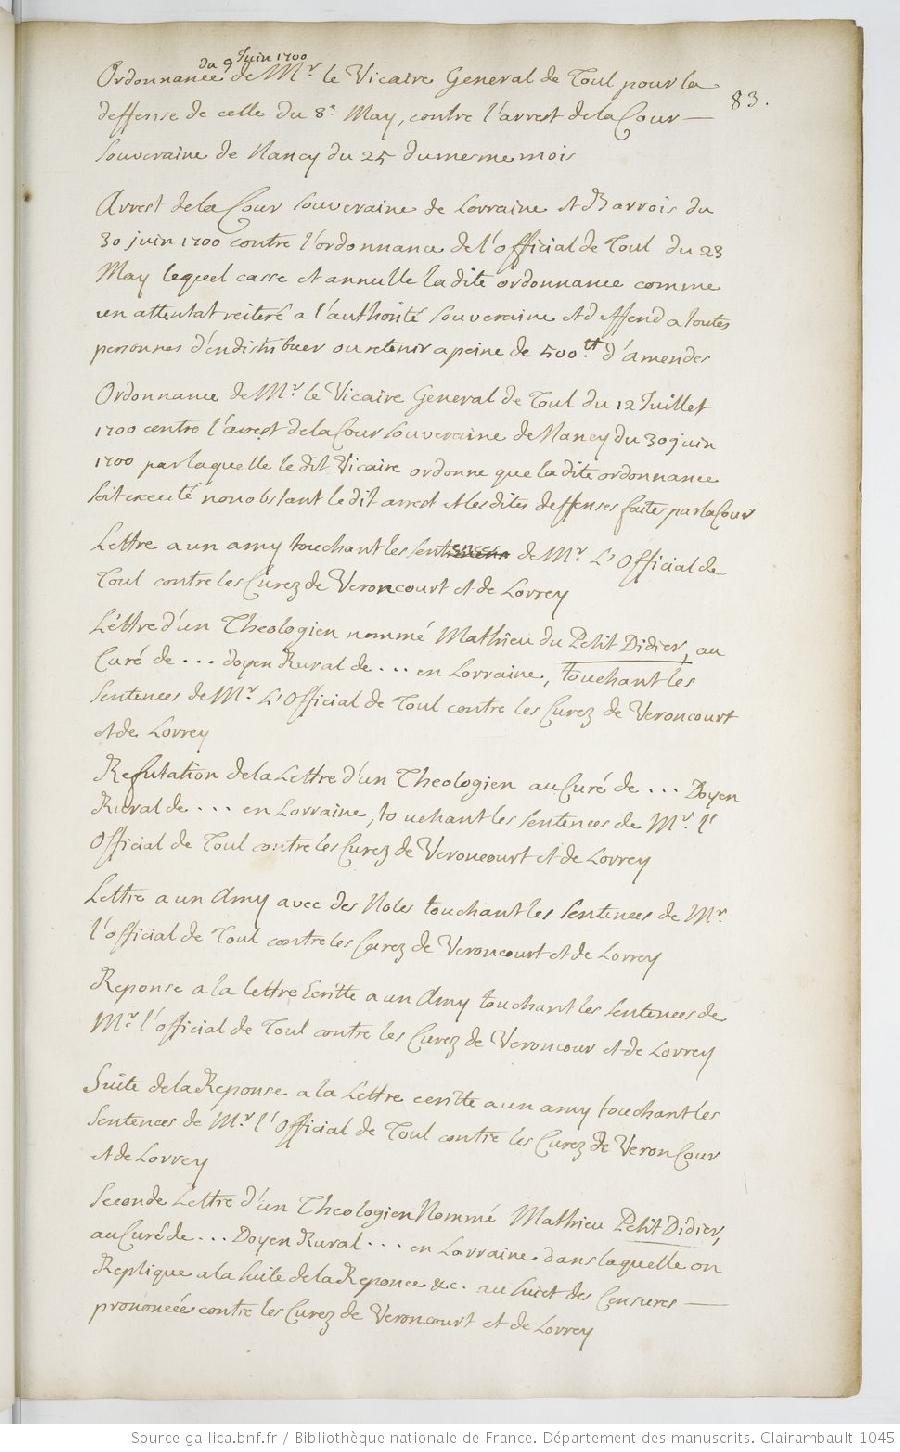 du 9 Juin 1700
Ordonnance de Mr. le Vicaire General de Toul pour la
deffense de celle du 8e May, contre l'arrest de la Cour
83.
Souveraine de Nancy du 25 du mesme mois
Arrest de la Cour souveraine de Lorraine et Barrois du
30 juin 1700 contre l'ordonnance de l'official de Toul du 23
May lequel casse et annulle la dite ordonnance comme
un attentat reiteré a l'authorité souveraine et deffend a toutes
personnes d'en distribuer ou retenir a peine de 500tt. d'amendes
Ordonnance de Mr. le Vicaire General de Toul du 12 Juillet
1700 contre l'arrest de la Cour souveraine de Nancy du 30 juin
1700 par laquelle le dit Vicaire ordonne que la dite ordonnance
soit executé nonobstant le dit arrest et les dites deffenses faites par la Cour
Lettre a un amy touchant les de Mr. L'Official de
Toul contre les Curez de Veroncourt et de Lorrey
Lettre d'un Theologien nommé Mathieu du Petit Didier, au
Curé de ... doyen Rural de ... en Lorraine, touchant les
Sentences de Mr. L'Official de Toul contre les Curez de Veroncourt
et de Lorrey
Refutation de la Lettre d'un Theologien au Curé de ... Doyen
Rural de ... en Lorraine, touchant les Sentences de Mr. l'
Official de Toul contre les Curez de Veroncourt et de Lorrey
Lettre a un Amy avec des Notes touchant les Sentences de Mr.
l'official de Toul contre les Curez de Veroncourt et de Lorrey
Reponse a la lettre Ecritte a un Amy touchant les Sentences de
Mr. l'official de Toul contre les Curez de Veroncour et de Lorrey
Suite de la Reponse a la Lettre ecritte a un amy touchant les
Sentences de Mr. l'Official de Toul contre les Curez de Veron Cour
et de Lorrey
Seconde Lettre d'un Theologien Nommé Mathieu Petit Didier,
au Curé de ... Doyen Rural ... en Lorraine dans laquelle on
Replique a la suite de la Reponce &c. au sujet des Censures
prononcée contre les Curez de Veroncourt et de Lorrey
Source gallica.bnf.fr / Bibliothèque nationale de France. Département des manuscrits. Clairambault 1045